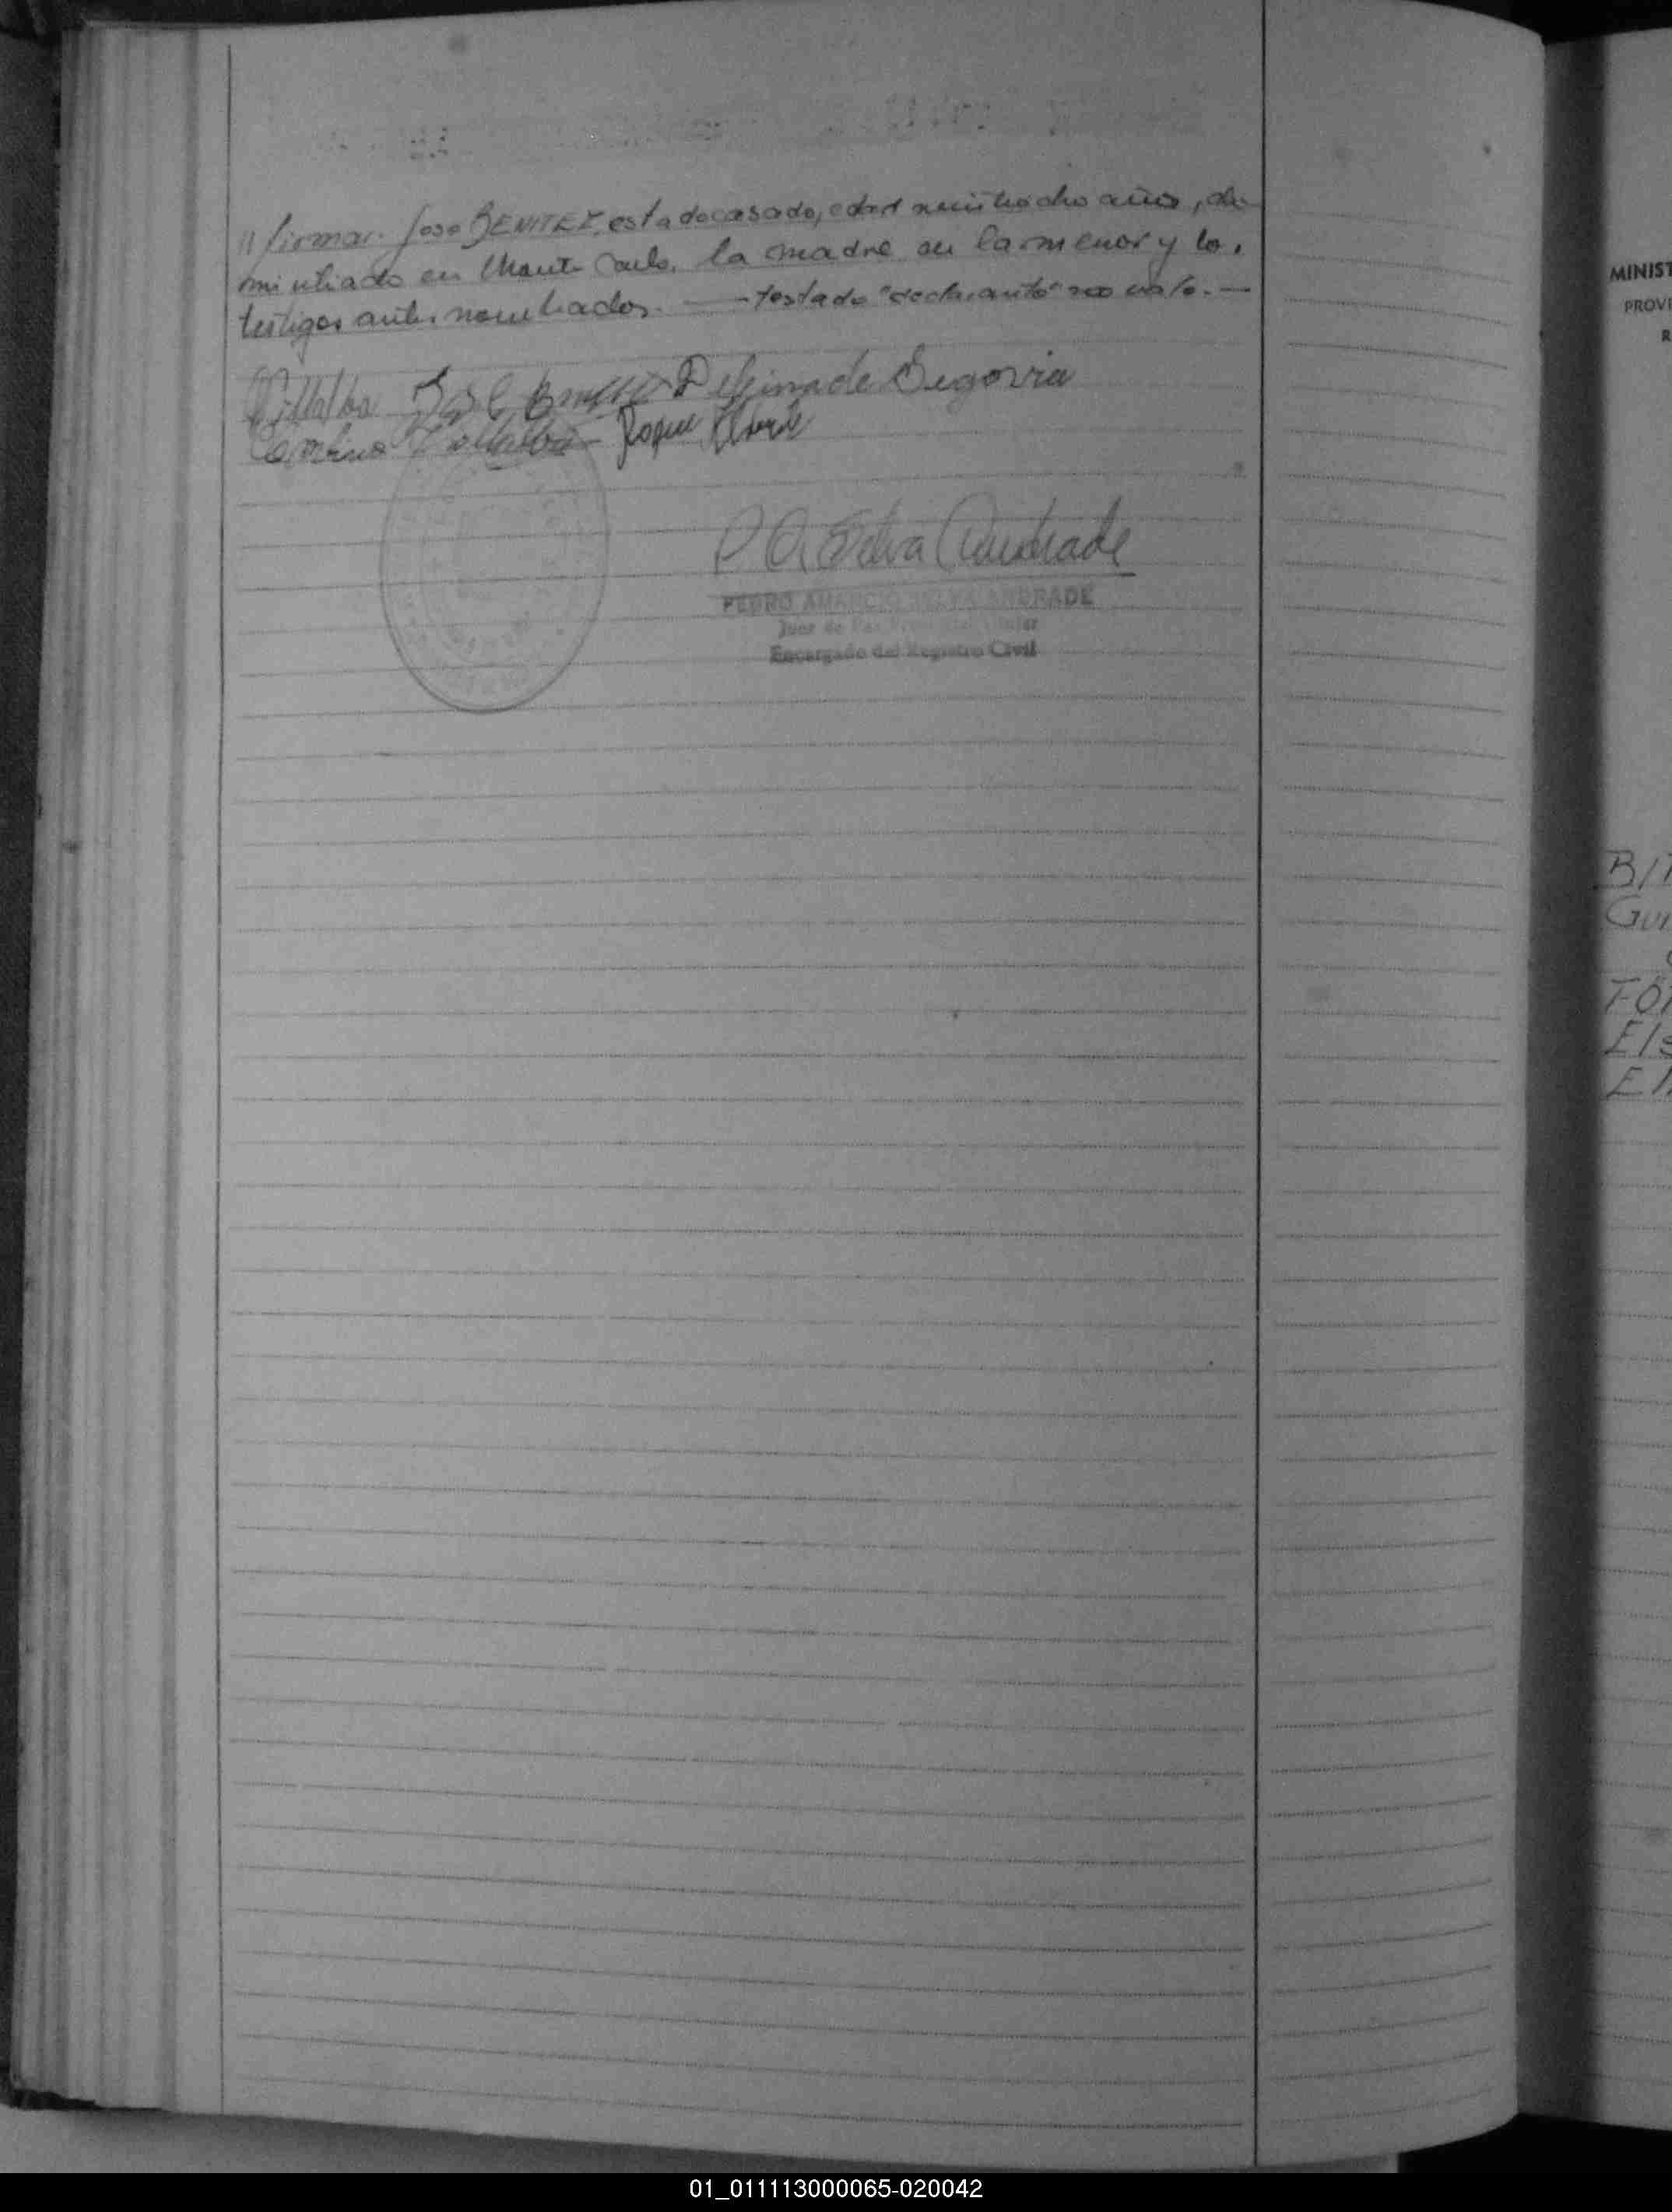 // firmar. José BENITEZ, estado casado, edad veintiocho años, do-
miciliado en Monte Carlo, la madre de la menor y los
testigos antes nombrados. — testado "declarante" no vale. —
Villalba José Benitez Delfina de Segovia
Villalba Roque
P A Selva Andrade
PEDRO AMANCIO SELVA ANDRADE
Juez de Paz
Encargado del Registro Civil
MINIST
PROVI
R
BIT
GUI
TOR
Els
El
01_011113000065-020042